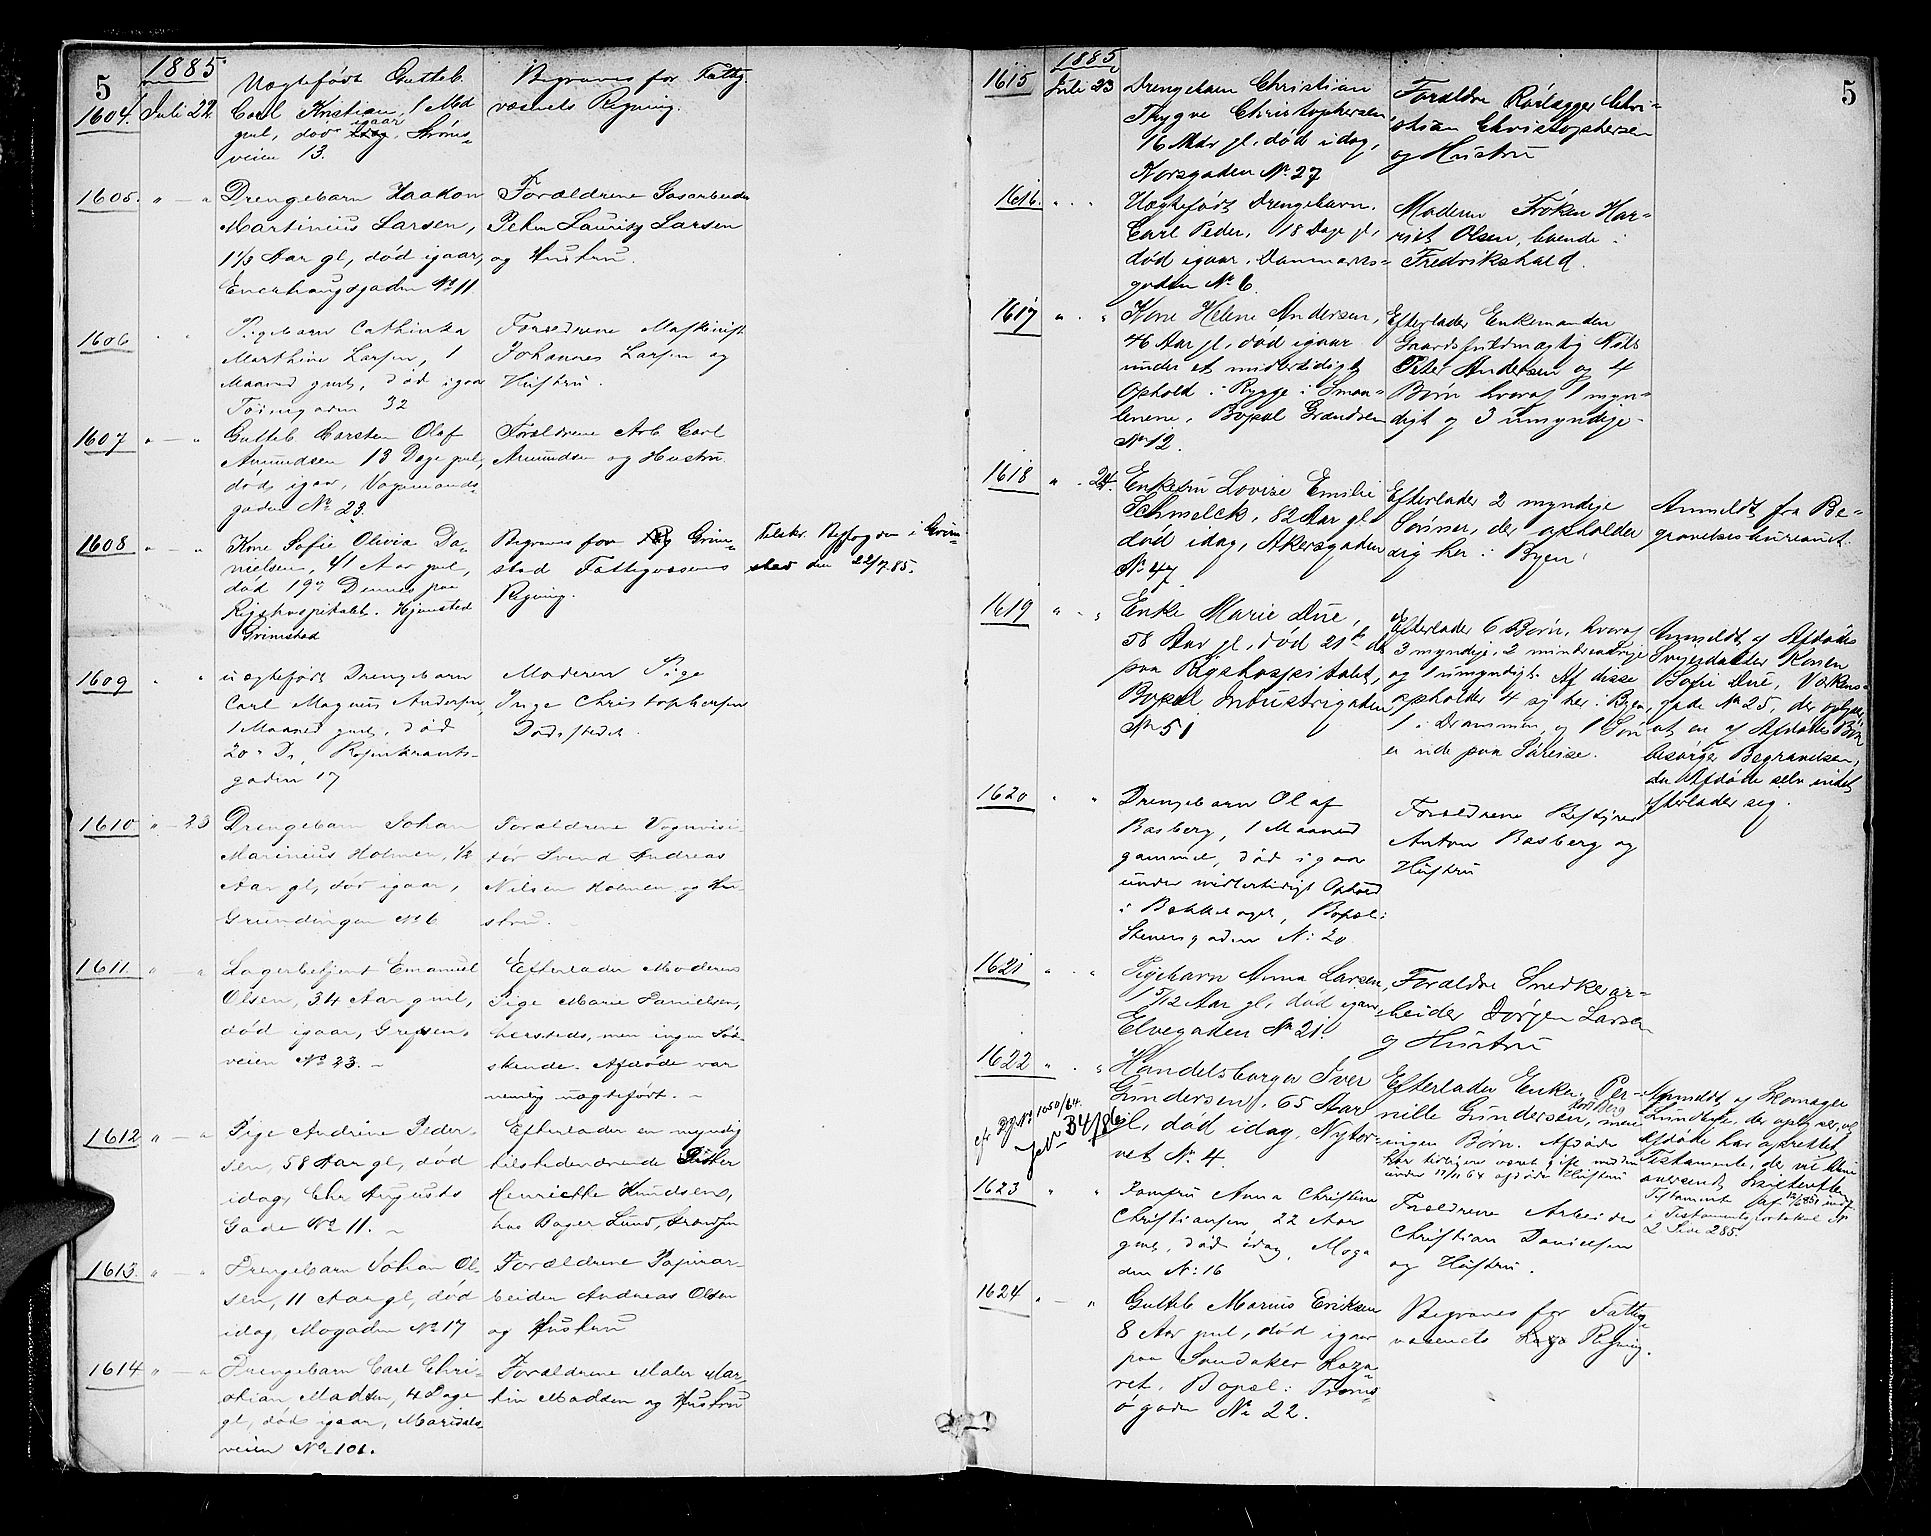 5
1885
1604. Juli 22.
Uægtefødt Gutteb.
Carl Kristian, 1 Md
gul, død igaar, Strøms-
veien 13.
Begraves for Fattig-
væsnets Regning.
1605. " — "
Drengebarn Haakon
Martinius Larsen,
1 1/3 Aar gl, død igaar,
Enerhaugsgaden No 11
Forældrene Gasarbeider
Peter Lauritz Larsen
og Hustru.
1606 " "
Pigebarn Cathinka
Marthine Larsen, 1
Maaned guml, død igaar
Tøiengaden 32
Forældrene Maskinist
Johannes Larsen og
Hustru.
1607 " — "
Gutteb. Carsten Olaf
Amundsen 13 Dage gul,
død igaar, Vognmands-
gaden No 23.
Forældrene Arb. Carl
Amundsen og Hustru.
1608 " — "
Kone Sofie Olivia Da-
nielsen, 41 Aar gul,
død 19de Dennes paa
Rigshospitalet. Hjemsted
Grimstad
Begraves for Grim-
stad Fattigvæsens
Regning.
Telekr. Byfogden i Grim-
stad den 22/7 85.
1609 " "
Uægtefødt Drengebarn
Carl Magnus Andersen,
1 Maaned guml, død
20 Ds, Rosenkrants-
gaden 17
Moderen Pige
Inge Christophersen
Dødsstedet.
1610 " — 23
Drengebarn Johan
Marinius Holmen, 1/2
Aar gl, død igaar,
Grændingen No 6
Forældrene Vognvisi-
tør Svend Andreas
Nilsen Holmen og Hu-
stru.
1611. " — "
Lagerbetjent Emanuel
Olsen, 34 Aar gul,
død igaar, Grefsen-
veien No 23. -
Efterlader Moderen
Pige Marie Danielsen,
hersteds, men ingen Sød-
skende. Afdøde var
nemlig uægtefødt. -
1612 " — "
Pige Andrine Peder-
sen, 58 Aar gl, død
idag, Chr Augusts
Gade No 11. -
Efterlader en myndig
tilstedeværende Datter
Henriette Knudsen,
hos Bager Lund, Strandgn
1613. " — "
Drengebarn Johan Ol-
sen, 11 Aar gl, død
idag, Mogaden No 17
Forældrene Papirar-
beider Andreas Olsen
og Hustru
1614 " — "
Drengebarn Carl Chri-
stian Madsen, 4 Dage
gl, død igaar, Maridals-
veien No 101.
Forældrene Maler Mar-
tin Madsen og Hustru
5
1885
1615 Juli 23
Drengebarn Christian
Thrygve Christophersen
16 Mdr gl. død idag,
Korsgaden No 27
Forældre Rørlægger Chri-
stian Christophersen
og Hustru
1616. " "
Uægtefødt Drengebarn.
Carl Peder, 18 Dage gl,
død igaar, Danmarks-
gaden No 6.
Moderen Frøken Har-
riet Olsen, boende i
Fredrikshald.
1617 " . "
Kone Helene Andersen,
46 Aar gl. død igaar
under et midlertidigt
Ophold i Rygge i Smaa-
lenene, Bopæl Grændsen
No 12.
Efterlader Enkemanden
Gaardsfuldmægtig Nils
Peter Andersen og 4
Børn hvoraf 1 myn-
digt og 3 umyndige -
1618 " . 24.
Enkefru Lovise Emilie
Schmelck, 82 Aar gl
død idag, Akersgaden
No 47.
Efterlader 2 myndige
Sønner, der opholder
sig her i Byen.
Anmeldt fra Be-
gravelsesbureauet.
1619 " . "
Enke Marie Due,
58 Aar gl, død 21de ds
paa Rigshospitalet,
Bopæl Industrigaden
No 51
Efterlader 6 Børn, hvoraf
3 myndige, 2 mindreaarige
og 1 umyndigt. Af disse
opholder 4 sig her i Byen,
1 i Drammen, og 1 Søn
er ude paa Søreise.
Anmeldt af Afdødes
Svigerdatter Konen
Sofie Due, Vækens-
gade No 25, der oplyser,
at en af Afdødes Børn
besørger Begravelsen,
da Afdøde selv intet
efterlader sig.
1620 " "
Drengebarn Olaf
Basberg, 1 Maaned
gammel, død igaar
under midlertidigt Ophold
i Bækkelaget, Bopæl:
Stenersgaden No 20.
Forældrene Bestyrer
Anton Basberg og
Hustru
1621 " . "
Pigebarn Anna Larsen,
1 5/12 Aar gl, død igaar,
Elvegaden No 21.
Forældre Snedkerar-
beider Jørgen Larsen
og Hustru
1622 " . "
cfr D.J.No 1050/64.
Handelsborger Iver
Gundersen, 65 Aar
gl, død idag, Nytor-
vet No 4.
Efterlader Enken Per-
nille Gundersen, men
ingen Børn. Afdøde
har tidligere været gift med den
under 17/11 64 afdøde Hustru
Anmeldt af Skomager
Lundbye, der oplyser, at
Afdøde har oprettet
Testamente, der vil blive
anvendt Skifteretten.
Testament
i Testamentsprotokol
2 Side 285.
1623 " "
Jomfru Anna Christine
Christiansen, 22 Aar
guml, død idag, Moga
den No 16
Forældrene Arbeider
Christian Danielsen
og Hustru.
1624 " — "
Gutteb Marius Eriksen
8 Aar gul, død igaar
paa Sandaker Laza-
ret. Bopæl: Troms-
øgaden No 22.
Begraves for Fattig-
væsenets Regning.